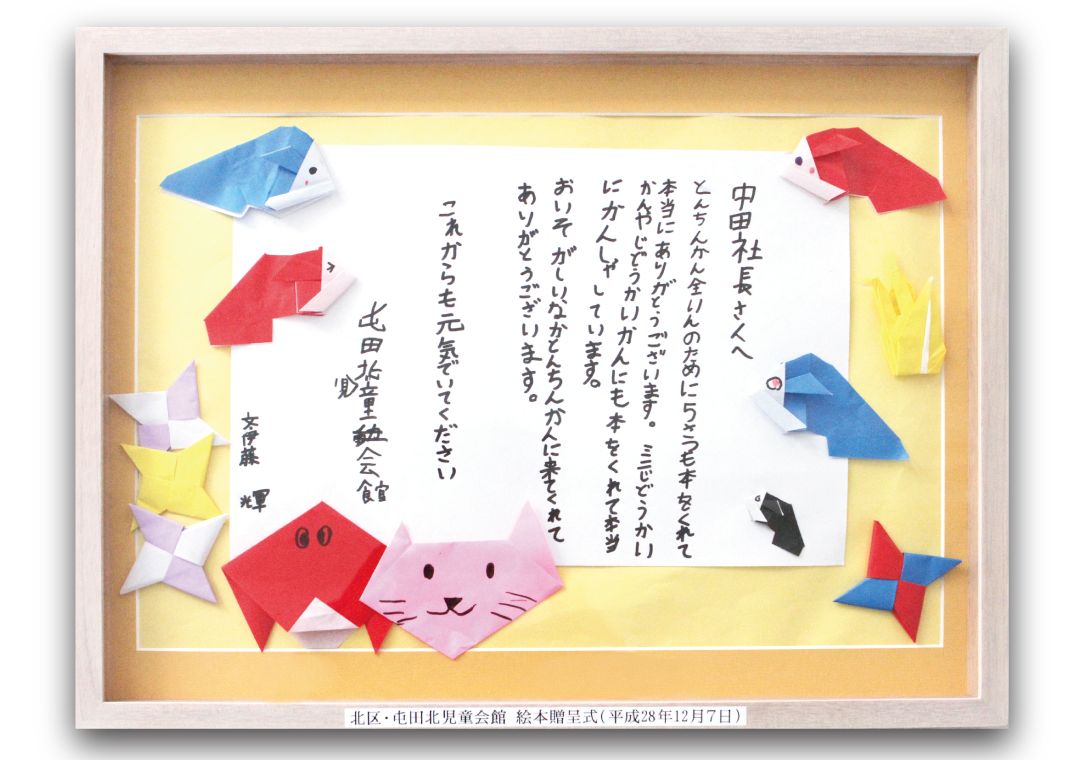 中田社長さんへ
とんちんかん全いんのために5さつも本をくれて
本当にありがとうございます。ミニじどうかい
かんやじどうかいかんにも本をくれて本当
にかんしゃしています。
おいそがしいなかとんちんかんに来てくれて
ありがとうございます。
これからも元気でいてください
屯田北児童会館
文伊藤 輝
北区・屯田北児童会館 絵本贈呈式(平成28年12月7日)